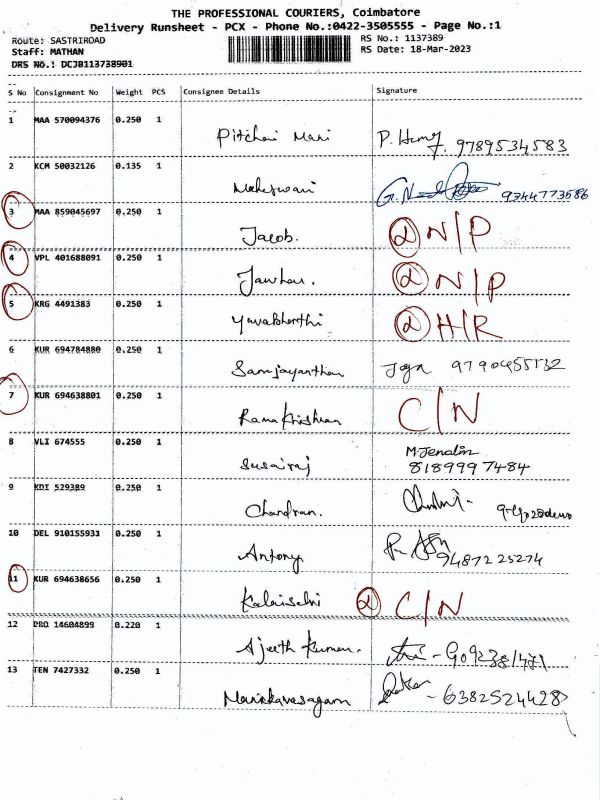 THE PROFESSIONAL COURIERS, Coimbatore
Delivery Runsheet - PCX - Phone No.:0422-3505555 - Page No.:1
Route: SASTRIROAD RS No.: 1137389
Staff: MATHAN RS Date: 18-Mar-2023
DRS No.: DCJB113738901
S No Consignment No Weight PCS Consignee Details Signature
1 MAA 570094376 0.250 1
Pitchai Mani P. 9789534583
2 KCM 50032126 0.135 1
Maheswari G. 9344773586
3 MAA 859045697 0.250 1
Jacob. N/P
4 VPL 401688091 0.250 1
N/P
5 KRG 4491383 0.250 1
Yuvabharthi H/R
6 KUR 694784880 0.250 1
Sanjayanthan Joga
7 KUR 694638801 0.250 1
Rama Krishnan C/N
8 VLI 674555 0.250 1 M.Jenalin
Susairaj 8189997484
9 KDI 529389 0.250 1
Chandran.
10 DEL 910155931 0.250 1
Antony 9487225274
11 KUR 694638656 0.250 1
Kalaiselvi C/N
12 14604899 0.220 1
Ajeeth Kumar.
13 TEN 7427332 0.250 1
Manickavasagam - 6382524428